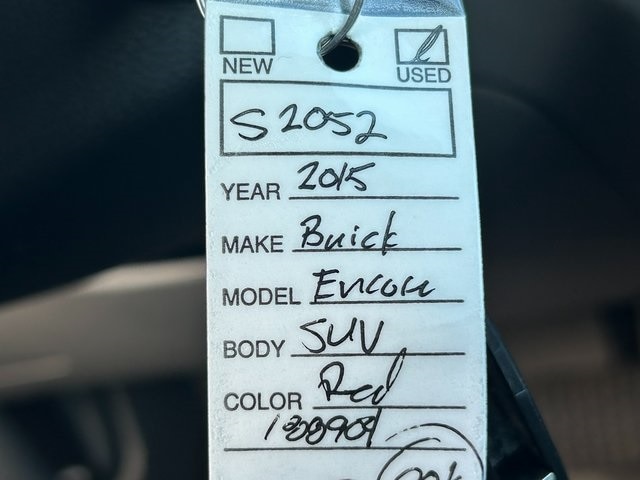 NEW USED
S2052
YEAR 2015
MAKE Buick
MODEL Encore
BODY SUV
COLOR Red